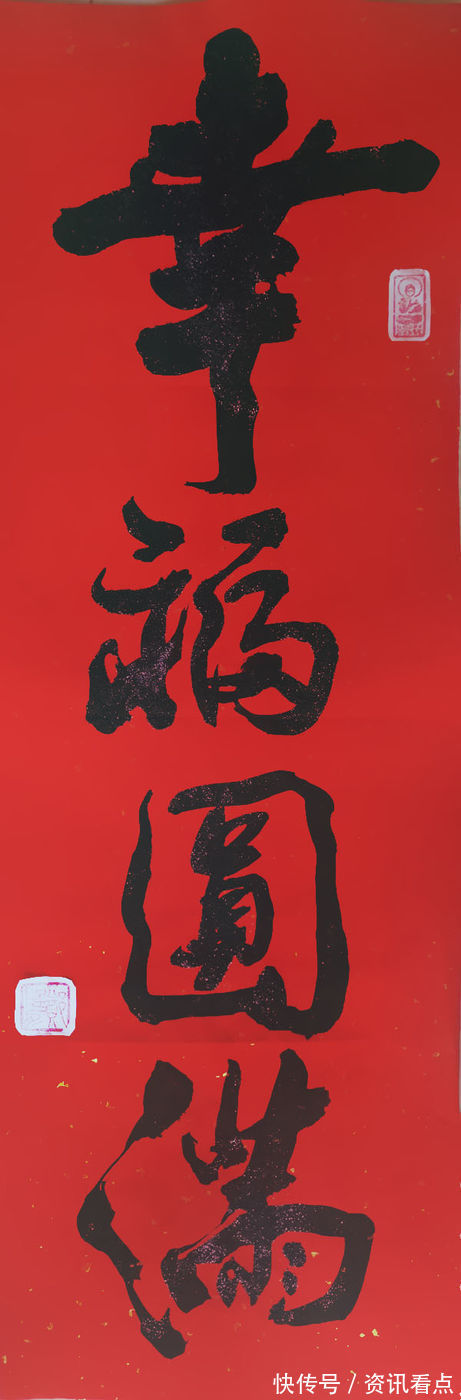 幸福圓滿
快传号/资讯看点